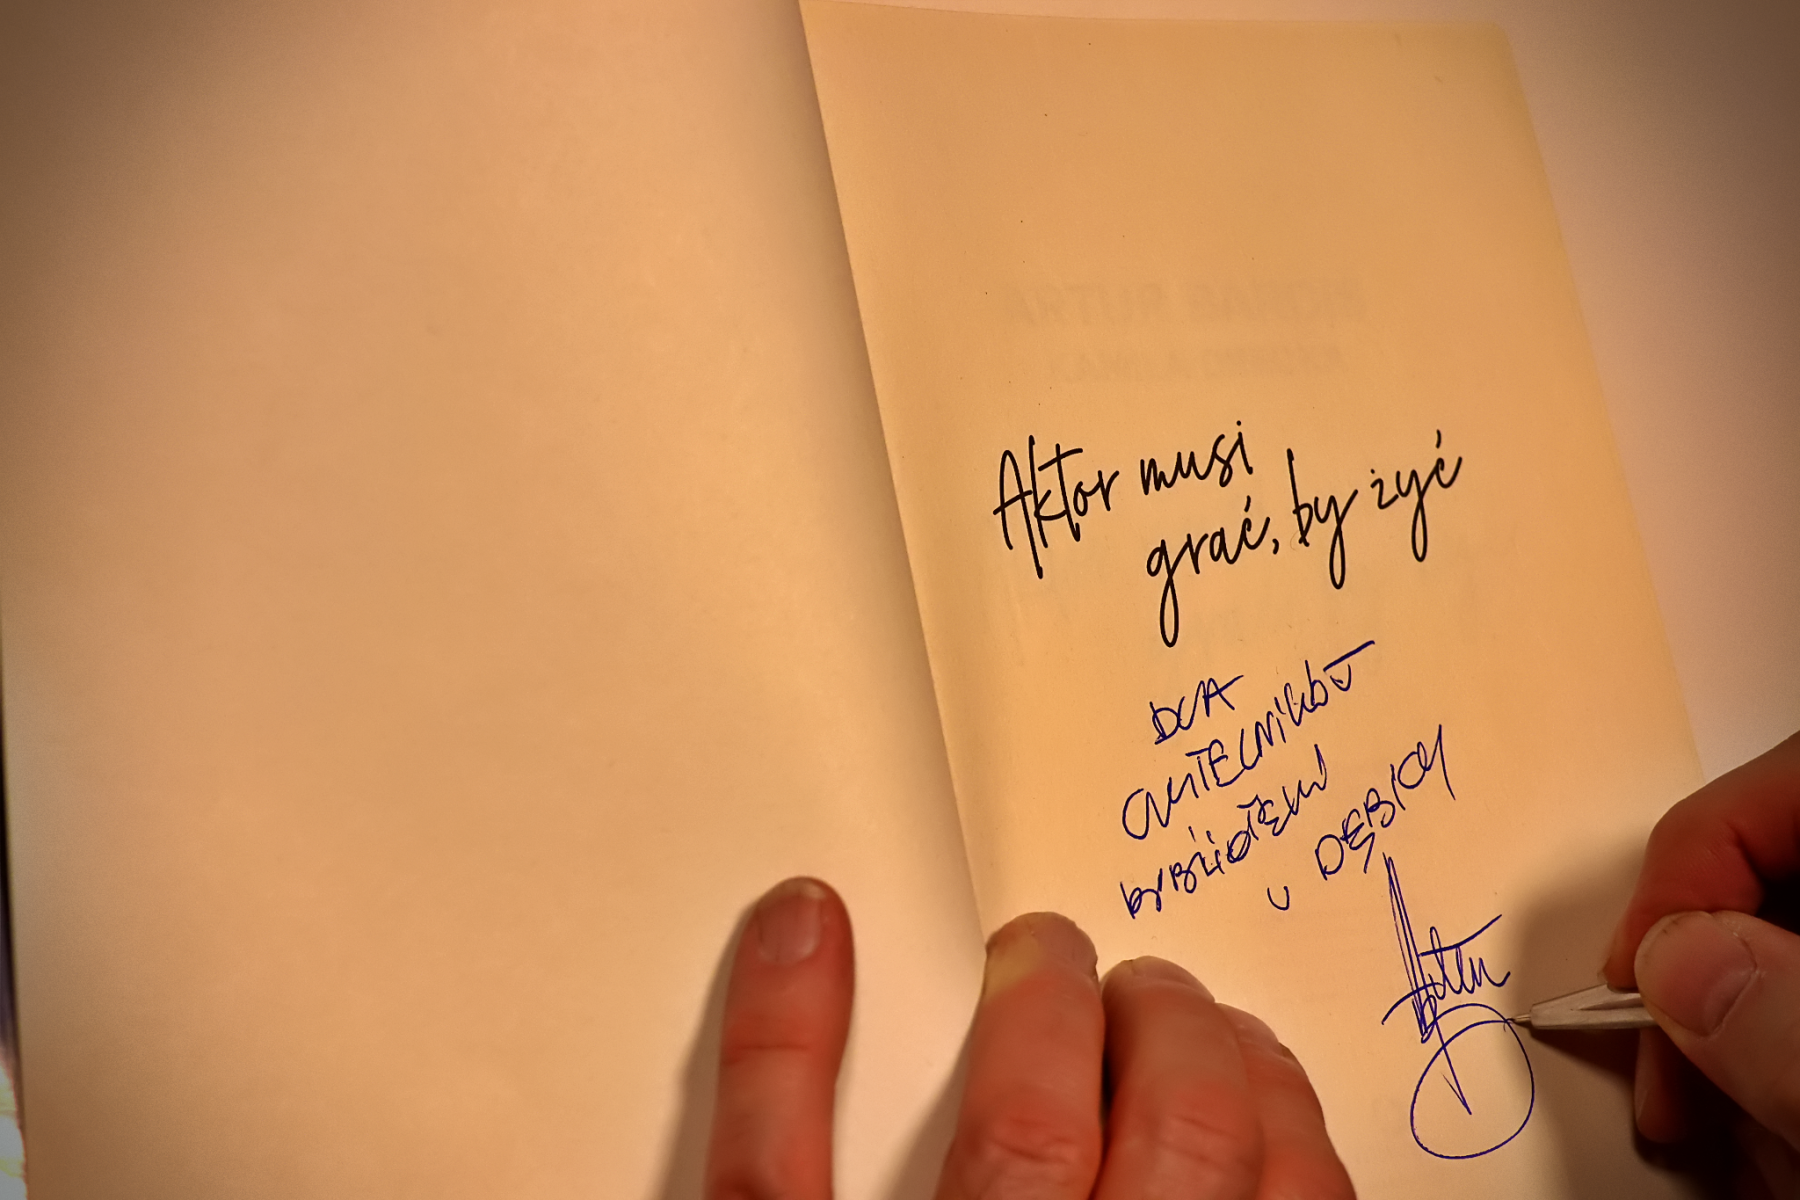 ARTUR BARCIŚ
KAMILA DRECKA
Aktor musi
grać, by żyć
DLA
CZYTELNIKÓW
BIBLIOTEKI
W DĘBICY
Artur